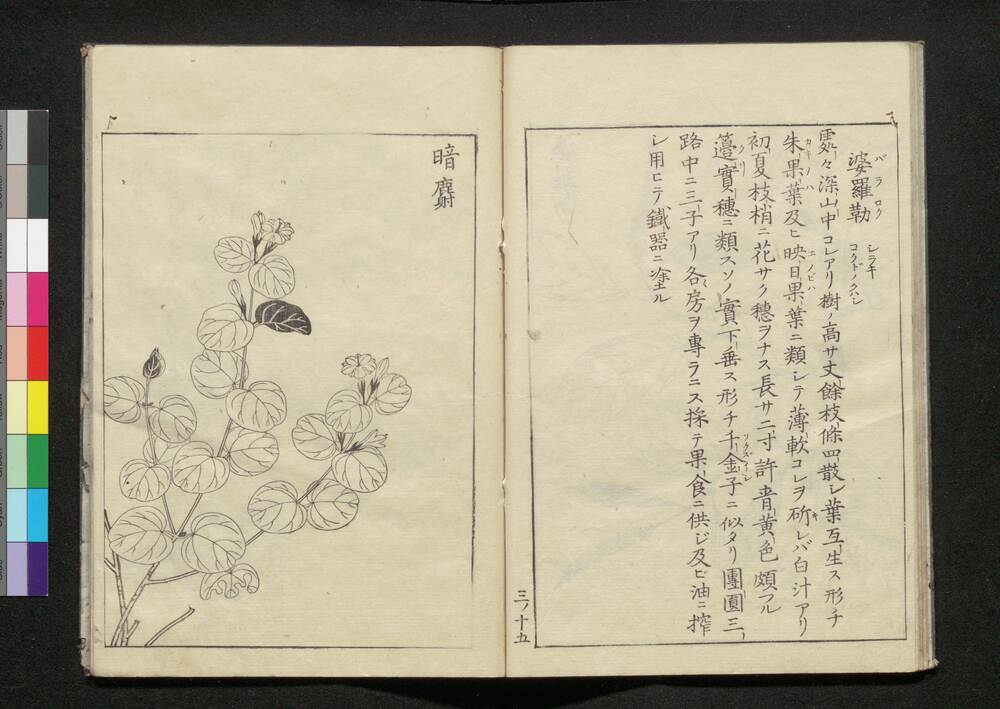 婆羅勒 バラロク シラキ コクドノクハシ
處々深山中コレアリ樹ノ高サ丈餘枝條四散シ葉互生ス形チ
朱果葉及ヒ映日果葉ニ類シテ薄軟コレヲ斫レバ白汁アリ
初夏枝梢ニ花サク穗ヲナス長サ二寸許青黄色頗フル
籩實穗ニ類スソノ實下垂ス形チ千金子ニ似タリ團圓三
路中ニ三子アリ各房ヲ專ラニス採テ果食ニ供シ及ビ油ニ搾
シ用ヒテ鐵器ニ塗ル
三ノ十五
暗麝